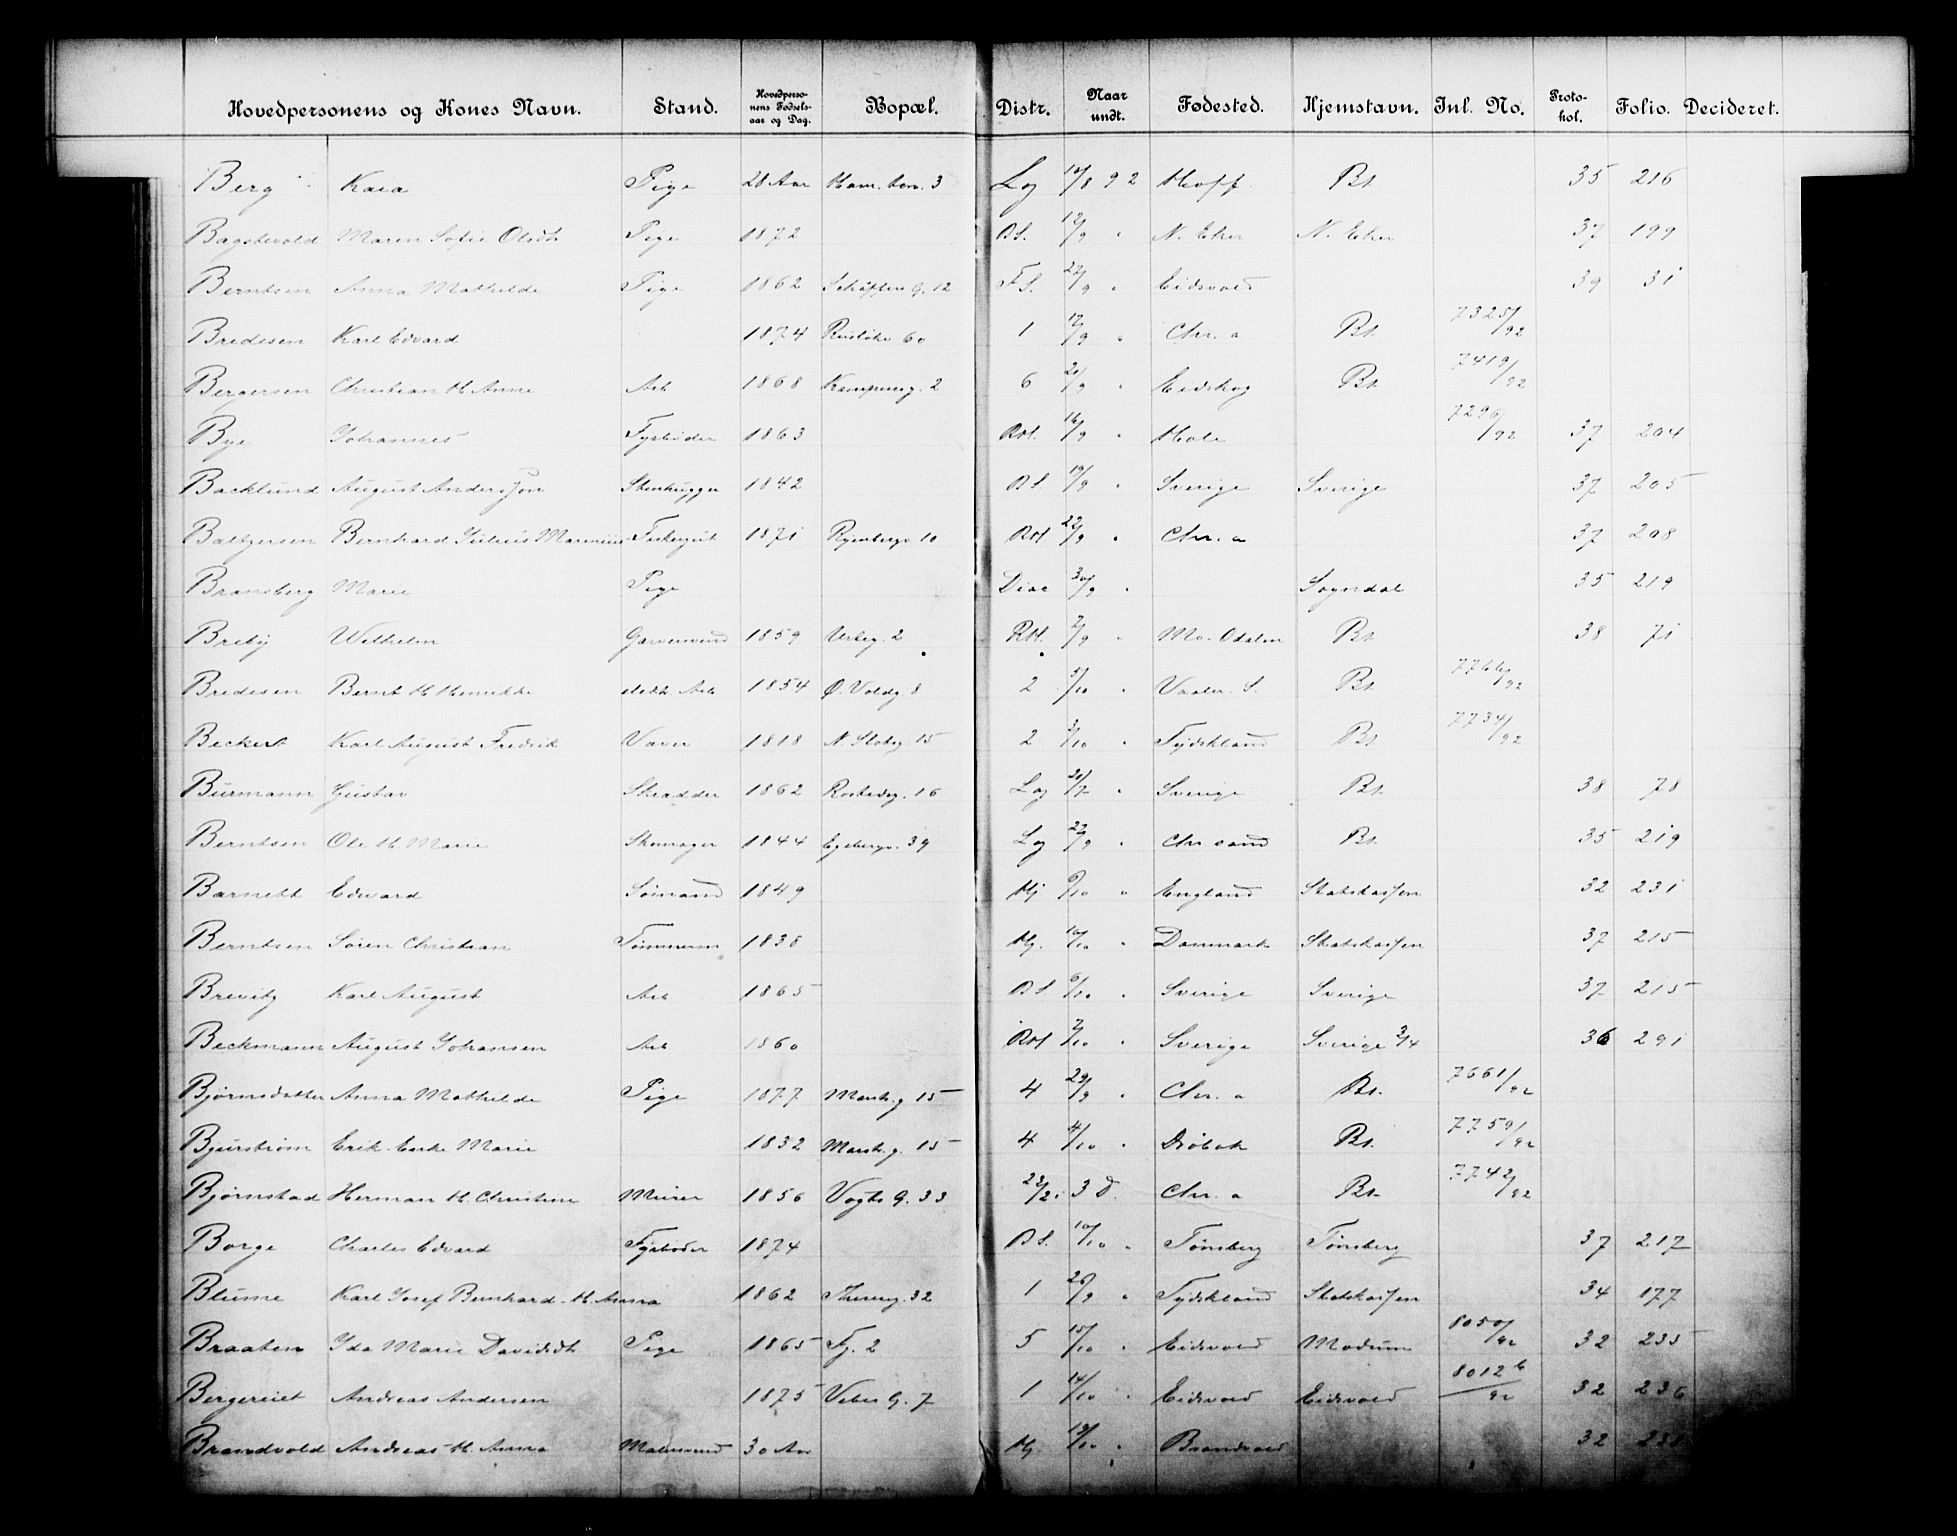 Hovedpersonens og Kones Navn. Stand. Hovedpersonens Fødselsaar og Dag. Bopæl. Distr. Naar undt. Fødested. Hjemstavn. Inl. No. Protokol. Folio. Decideret.
Berg Kaia Pige 28 Aar 3 Lg 10/8 92 Hoff Bt. 35 216
Maren Sofie Olsdt Pige 1872 BS. 12/9 " N. Eker N. Eker 37 199
Berntsen Anna Mathilde Pige 1862 12 FS. 22/9 " Eidsvold 39 31
Bredesen Karl Edvard 1874 60 1 17/9 " Chr.a Bt. 7325/92
Bergersen Christian H. Anne Arb 1868 Kampensg. 2 6 21/9 " Eidskog Bt. 7419/92
Bye Johannes Fyrbøder 1863 RH. 16/9 " Hole 7296/92 37 204
Backlund August Andersson Stenhugger 1842 BS 19/9 " Sverige Sverige 37 205
Baltzersen Bernhard Julius Marinius 1871 10 RH 22/9 " Chr.a 37 208
Bransberg Marie Pige Diac 30/9 " Sogndal 35 219
Breby Wilhelm Garversvend 1859 Urteg. 2 RH. 2/9 " No. Odalen Bt. 38 71
Bredesen Bernt H. Henrikke Arb 1854 Ø. Voldg 8 2 5/10 " Vaaler. S. Bt. 7766/92
Beckert Karl August Fredrik Væver 1818 N. Slotsg. 15 2 3/10 " Tydskland Bt. 7734/92
Burmann Gustav Skrædder 1862 Rostedsg. 16 Lg 21/7 " Sverige Bt. 38 78
Berntsen Ole H. Marie Skomager 1844 Egebergs. 39 Lg 22/9 " Chr.sand Bt. 35 219
Barnett Edward Sømand 1849 Hj 6/10 " England Statskassen 32 231
Berntsen Søren Christian Tømmerm 1838 Hj. 10/10 " Danmark Statskassen 37 215
Karl August Arb 1865 BS. 6/10 " Sverige Sverige 37 215
Beckmann August Johansen Arb 1860 RH 7/10 " Sverige Sverige 3/4 36 291
Bjørnsdatter Anna Mathilde Pige 1877 Mark.g 15 4 29/9 " Chr.a Bt. 7661/92
Bjurstrøm Erik. Enke Marie 1832 Mark.g. 15 4 4/10 " Drøbak Bt. 7759/92
Bjørnstad Herman H. Christine Murer 1856 Vogts G. 33 Chr.a Bt. 7742/92
Borge Charles Edvard Fyrbøder 1874 BS. 10/10 " Tønsberg Tønsberg 37 217
Blume Karl Josef Bernhard - H. Anna 1862 Thereseg. 32 1 26/9 " Tydskland Statskassen 34 177
Braaten Ida Marie Davidsdt Pige 1865 Tg. 2 5 15/10 " Eidsvold Modum 8050/92 32 235
Bergereiet Andreas Andersen 1875 Vibes G. 7 1 14/10 " Eidsvold Eidsvold 8012b/92 32 236
Brandvold Andreas H. Anna Malersvend 30 Aar Hj 13/10 " Brandvold 32